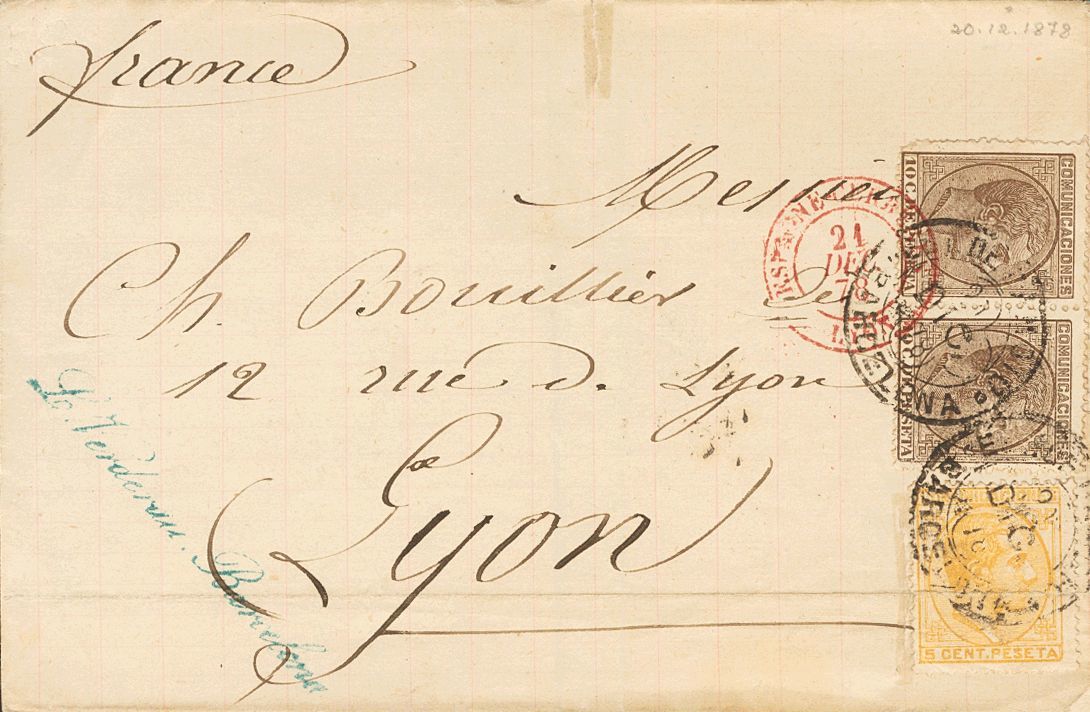 20.12.1878
france
Messieurs
Ch. Bouillier
12 rue d. Lyon
Lyon
Barcelona
21
DEC
78
COMUNICACIONES
10 C. DE PESETA
COMUNICACIONES
10 C. DE PESETA
BARCELONA
BARCELONA
5 CENT. PESETA